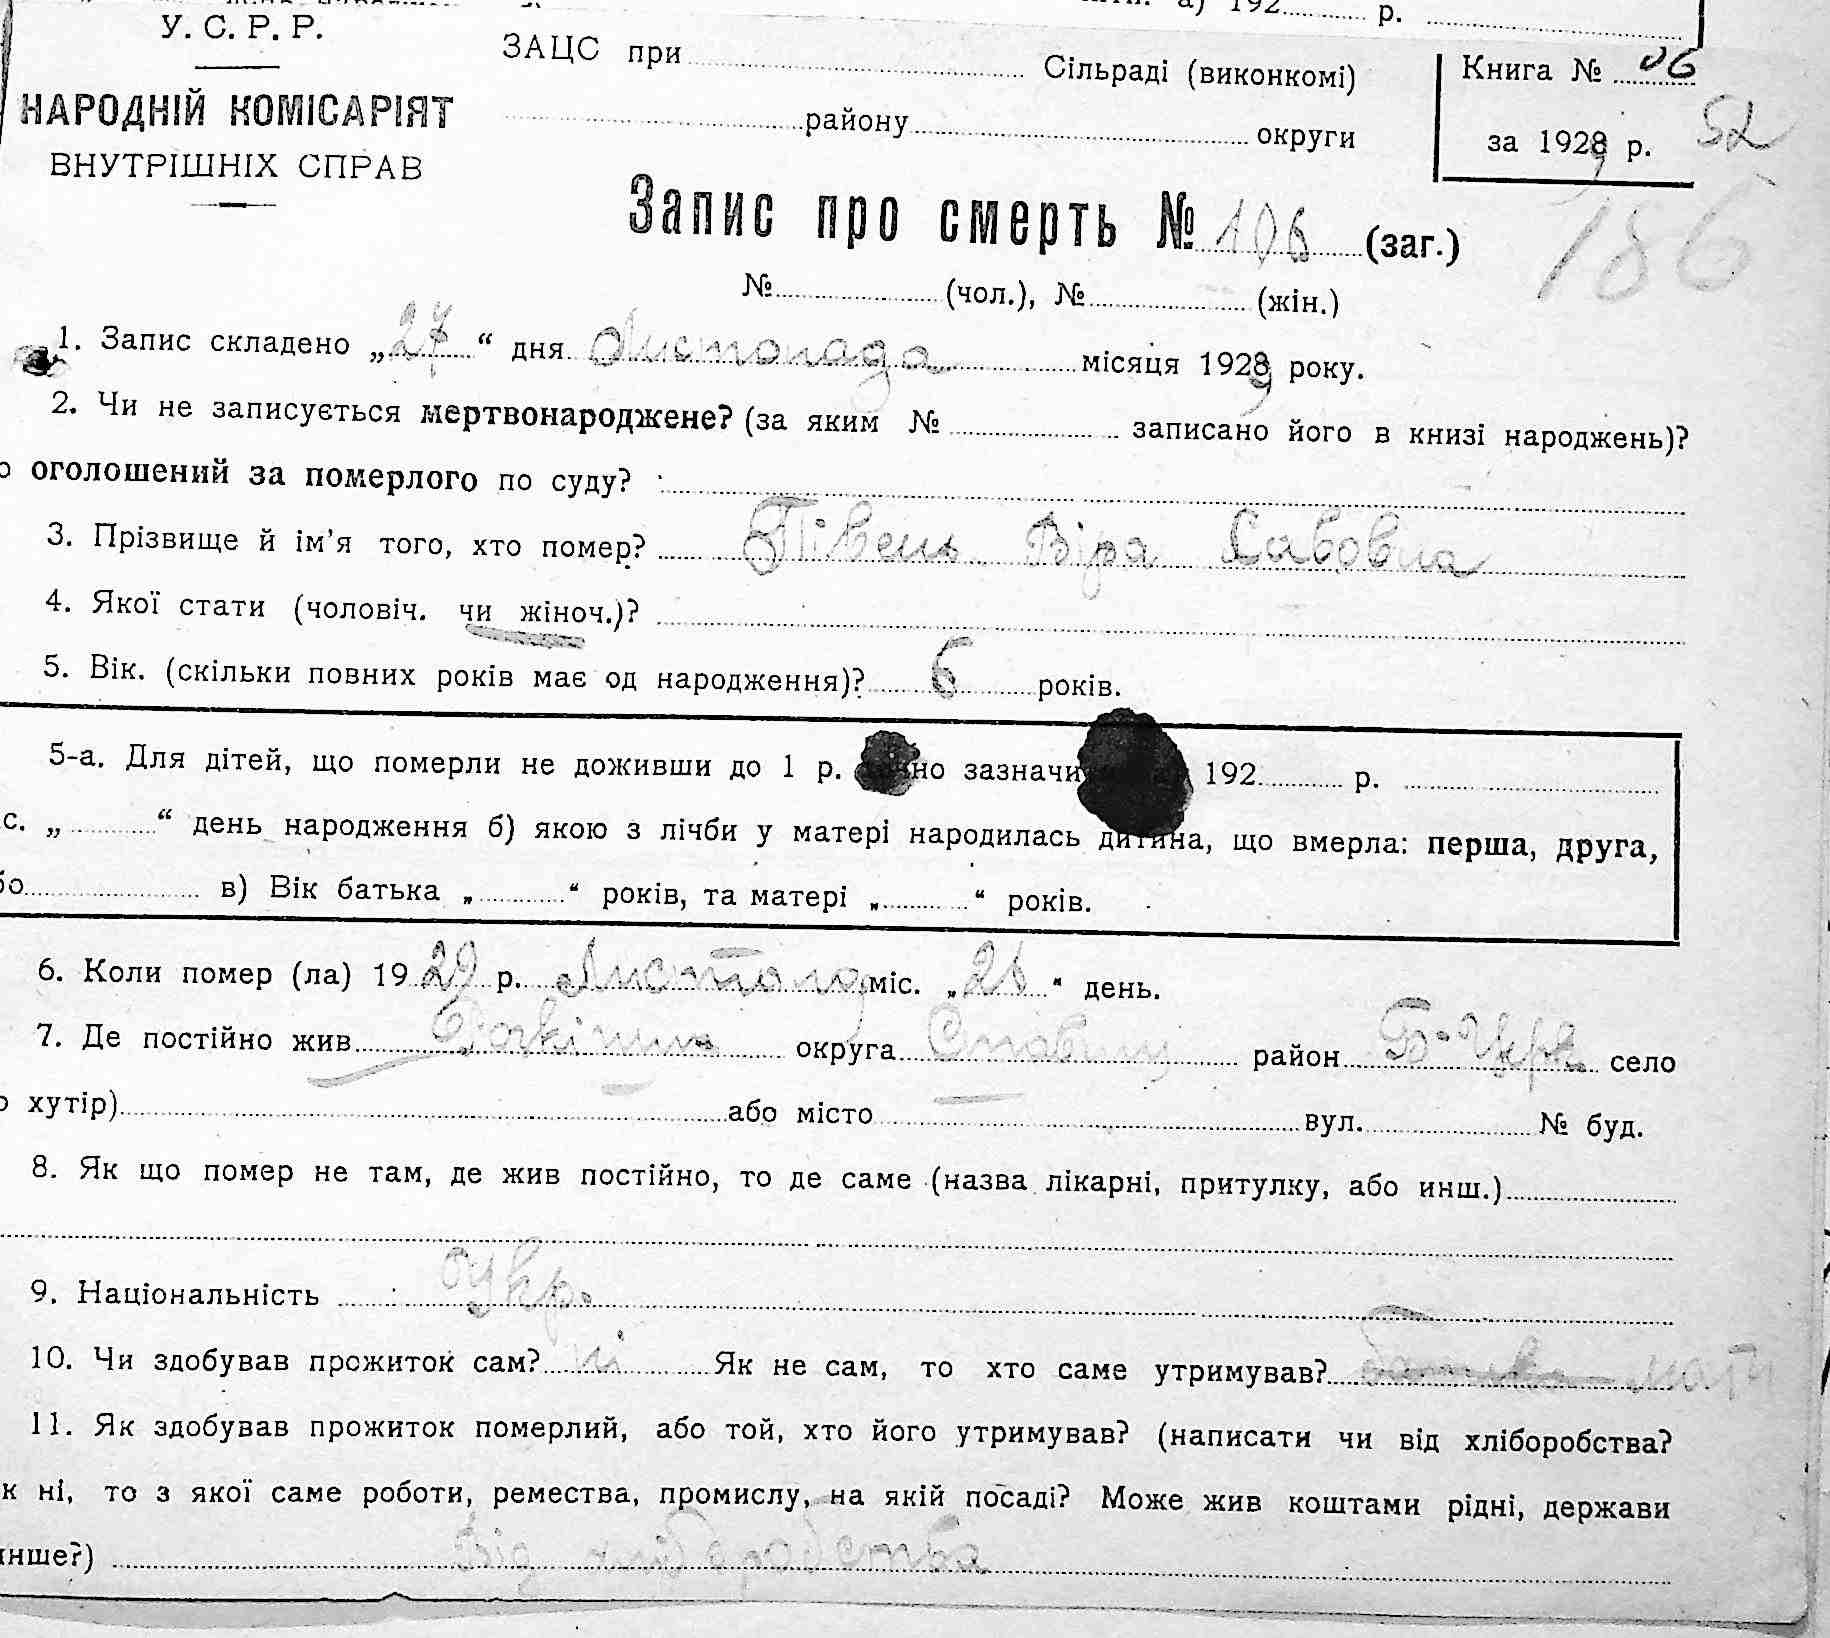 а) 192 р.
У. С. Р. Р.
НАРОДНІЙ КОМІСАРІЯТ
ВНУТРІШНІХ СПРАВ
ЗАЦС при Сільраді (виконкомі)
району округи
Книга № 06
за 1929 р.
52
186
Запис про смерть № 106 (заг.)
№ (чол.), № (жін.)
1. Запис складено „27“ дня Листопада місяця 1929 року.
2. Чи не записується мертвонароджене? (за яким № записано його в книзі народжень)?
оголошений за померлого по суду?
3. Прізвище й ім’я того, хто помер? Півень Віра Савовна
4. Якої стати (чоловіч. чи жіноч.)?
5. Вік. (скільки повних років має од народження)? 6 років.
5-а. Для дітей, що померли не доживши до 1 р. зазначи 192 р.
с. „ “ день народження б) якою з лічби у матері народилась дитина, що вмерла: перша, друга,
бо в) Вік батька „ “ років, та матері „ “ років.
6. Коли помер (ла) 1929 р. Листопад міс. „26“ день.
7. Де постійно жив округа район Б-Церк село
хутір) або місто вул. № буд.
8. Як що помер не там, де жив постійно, то де саме (назва лікарні, притулку, або инш.)
9. Національність Укр.
10. Чи здобував прожиток сам? ні Як не сам, то хто саме утримував? батько мати
11. Як здобував прожиток померлий, або той, хто його утримував? (написати чи від хліборобства?
к ні, то з якої саме роботи, ремества, промислу, на якій посаді? Може жив коштами рідні, держави
инше?) Від хліборобства